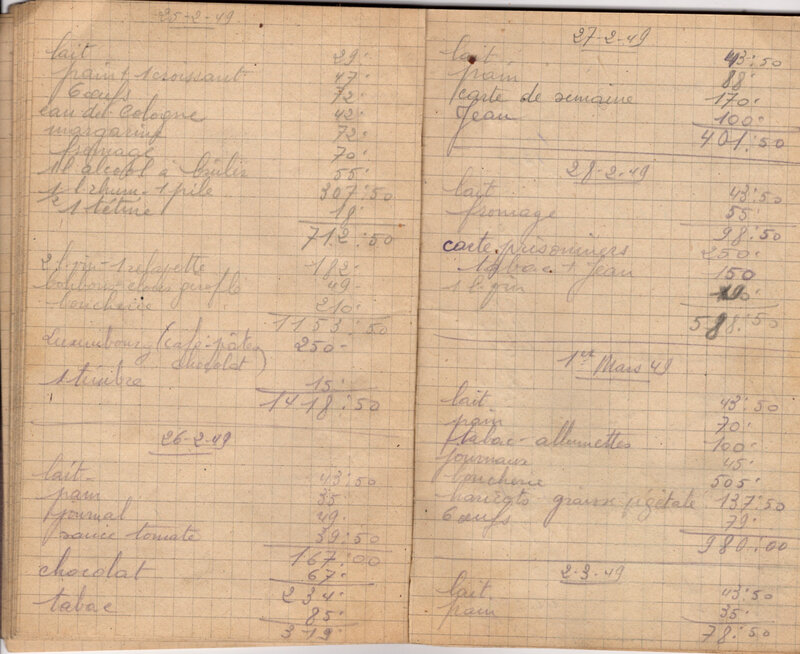 25-2-49
lait 29:
pain + 1 croissant 47:
6 œufs 72:
eau de Cologne 42:
margarine 72:
fromage 70:
1 l alcool à brûler 55:
1 l rhum - 1 pile 307:50
1 tétine 18:
712:50
2 l vin - 182:
bonbons - clous girofle 49-
boucherie 210:
1153:50
Luxembourg (café - pâtes 250-
chocolat)
1 timbre 15:
1418:50
26-2-49
lait - 43:50
pain 35
journal 49:
sauce tomate 39:50
167:00
chocolat 67:
234:
tabac 85:
319:
27-2-49
lait 43:50
pain 88:
carte de semaine 170:
Jean 100:
401:50
28-2-49
lait 43:50
fromage 55:
98:50
carte prisonniers 250:
tabac + Jean 150
1 l
588:50
1er Mars 49
lait 43:50
pain 70:
tabac - allumettes 100:
journaux 45:
boucherie 505:
haricots - graisse végétale 137:50
6 œufs 79:
980:00
2-3-49
lait 43:50
pain 35:
78:50